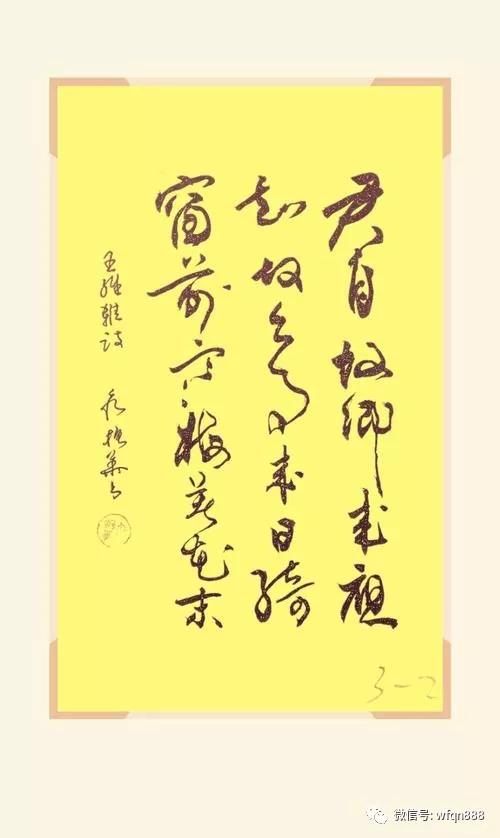 君自故鄉来應
知故鄉事来日綺
窗前寒梅著花未
王維雜詩
3-2
微信号: wfqn888